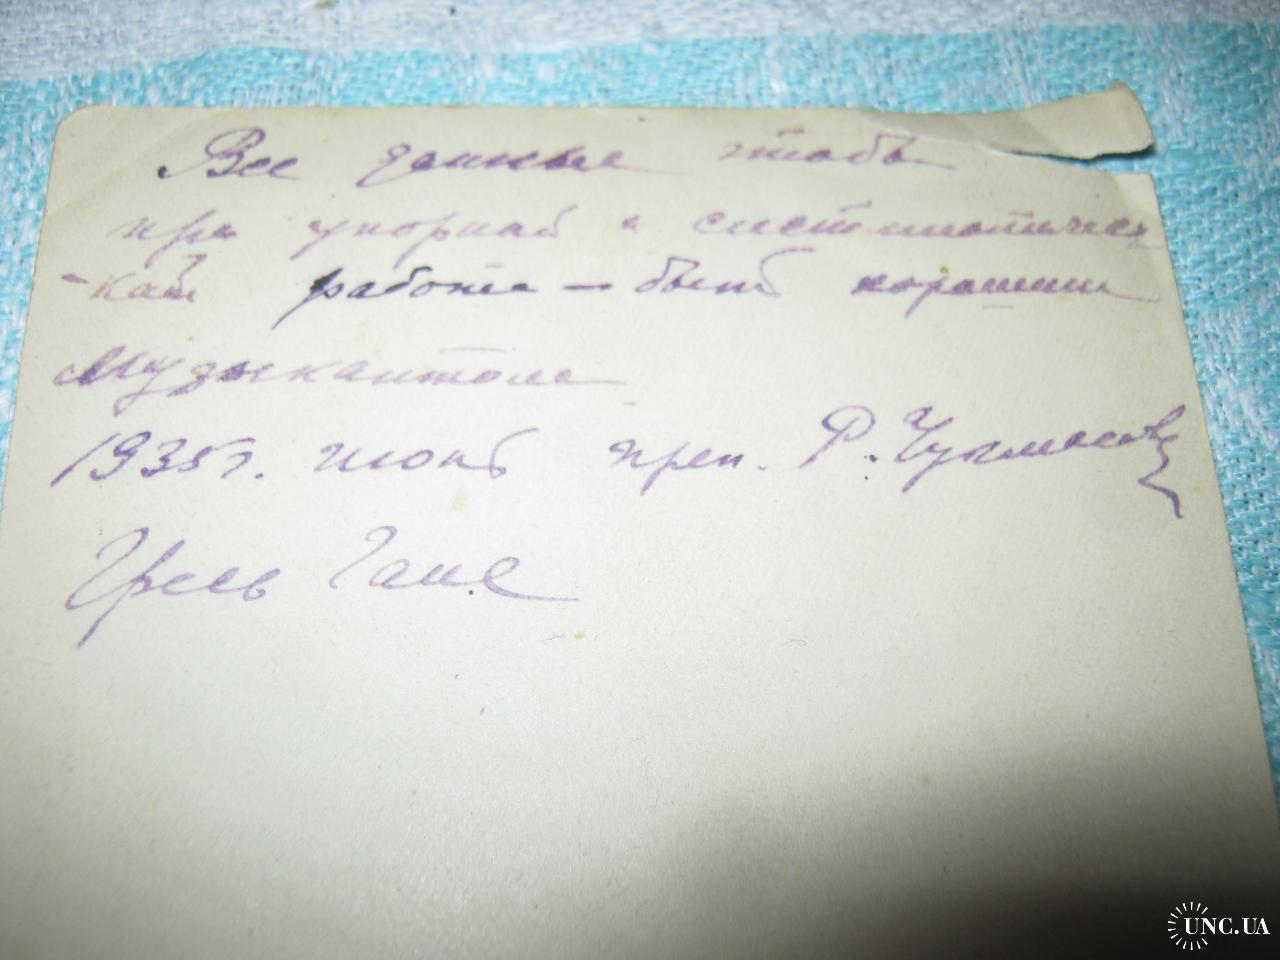 Все данные чтобы
при упорной и систематичес
-кой работе – быть хорошим
музыкантом
1935 г. июнь преп. Р.
Гале
UNC.UA